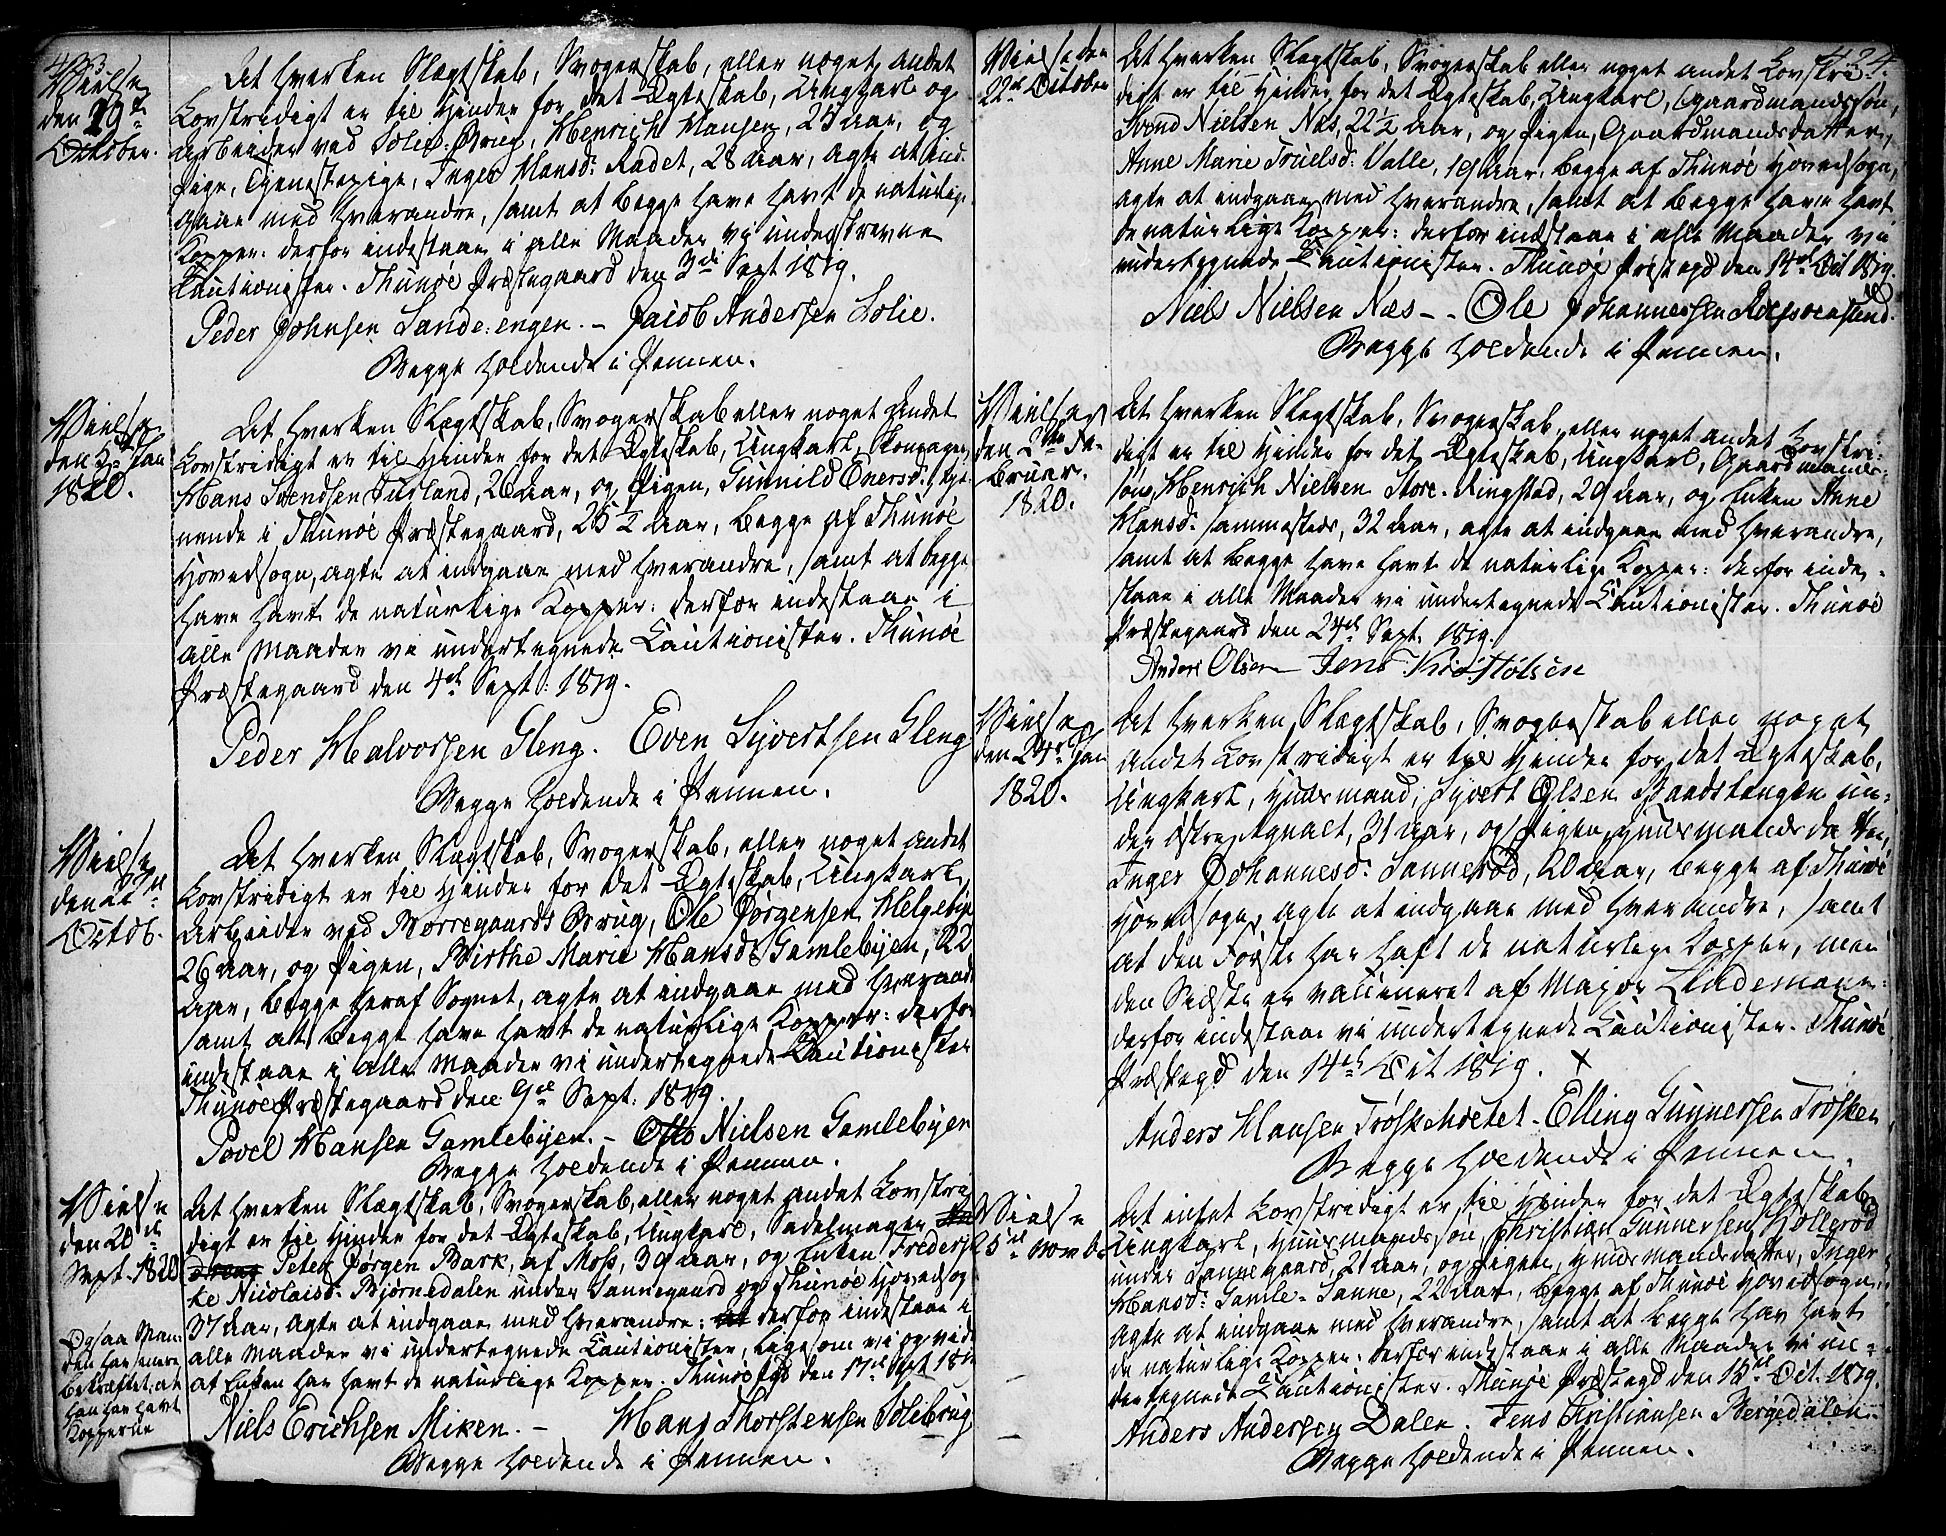 433
Vielse
den 29de
October.
At hverken Slægtskab, Svogerskab, eller noget andet
Lovstridigt er til Hinder for det Ægteskab, Ungkarl og
Arbeider ved Solie-Brug, Henrich Hansen, 25 Aar, og
Pige, Tjenestepige, Inger Hansd: Rødet, 28 Aar, agte at ind-
gaae med hverandre, samt at begge have havt de naturlige
Kopper: derfor indestaae i alle Maader vi underskrevne
Cautionister. Thunøe Præstegaard den 3die Sept 1819.
Peder Johnsen Sande:engen. - Jacob Andersen Solie.
Begge holdende i Pennen.
Vielse
den Jan
1820.
At hverken Slægtskab, Svogerskab eller noget Andet
Lovstridigt er til Hinder for det Ægteskab, Ungkarl, Skomager
Hans Svendsen Furland, 26 Aar, og Pigen, Gunnild Enersd:, tje-
nende i Thunøe Præstegaard, 25 ½ Aar, begge af Thunøe
Hovedsogn, agte at indgaae med hverandre, samt at begge
have havt de naturlige Kopper: derfor indestaae i
alle Maader vi undertegnede Cautionister. Thunøe
Præstegaard den 4de Sept: 1819.
Peder Halvorsen Gleng. Even Syvertsen Gleng
Begge holdende i Pennen.
Vielse
den 22de
Octob.
At hverken Slægtskab, Svogerskab, eller noget andet
Lovstridigt er til Hinder for det Ægteskab, Ungkarl,
Arbeider ved Borregaards Brug, Ole Jørgensen Helgebye
26 Aar, og Pigen, Birthe Marie Hansd: Gamlebyen, 22
Aar, begge heraf Sognet, agte at indgaae med hverandre
samt at begge have havt de naturlige Kopper: derfor
indestaae i alle Maader vi undertegnede Cautionister
Thunøe Præstegaard den 9de Sept: 1819.
Povel Hansen Gamlebyen. - Otto Nielsen Gamlebyen
Begge holdende i Pennen.
Vielse
den 20de
Sept. 1820
At hverken Slægtskab, Svogerskab, eller noget andet Lovstri-
digt er til Hinder for det Ægteskab, Ungkarl, Sadelmager
Peter Jørgen Bark, af Moss, 39 Aar, og Enken Frederik-
ke Nicolaisd: Bjørnedalen under Sannegaard og Thunøe Hovedsogn
37 Aar, agte at indgaae med hverandre: derfor indestaae i
alle Maader vi undertegnede Cautionister, ligesom vi og vide
at Enken har havt de naturlige Kopper. Thunøe Pgd den 17de Sept 1819
Ogsaa Man-
den har senere
bekræftet, at
han har havt
Kopperne
Niels Erichsen Miken. - Hans Thorstensen Soliebrug
Begge holdende i Pennen.
434.
Vielse den
22de October
At hverken Slægtskab, Svogerskab eller noget andet Lovstri-
digt er til Hinder for det Ægteskab, Ungkarl, Gaardmandssøn,
Svend Nielsen Næs, 22 ½ Aar, og Pigen, Gaardmandsdatter,
Anne Marie Truelsd: Valle, 19 Aar, begge af Thunøe Hovedsogn,
agte at indgaae med hverandre, samt at begge have havt
de naturlige Kopper: derfor indestaae i alle Maader vi
undertegnede Cautionister. Thunøe Præstegd den 14de Oct 1819.
Niels Nielsen Næs - - Ole Johannessen
Begge holdende i Pennen.
Vielse
den Fe-
bruar.
1820.
At hverken Slegtskab, Svogerskab, eller noget andet Lovstri-
digt er til Hinder for det Ægteskab, Ungkarl, Gaardmands-
søn, Henrich Nielsen Store-Ringstad, 29 Aar, og Enken Anne
Hansd: sammesteds, 32 Aar, agte at indgaae med hverandre,
samt at begge have havt de naturlige Kopper: derfor inde-
staae i alle Maader vi undertegnede Cautionister. Thunøe
Præstegaard den 24de Sept. 1819.
Anders Olsen Jens Kristofsen
Vielse
den 24de Jan
1820.
At hverken Slægtskab, Svogerskab eller noget
andet Lovstridigt er til Hinder for det Ægteskab,
Ungkarl, Huusmand, Syvert Olsen Baadstangen un-
der østre Agnalt, 31 Aar, og Pigen, Huusmandsdatter,
Inger Johannesd: Sannerød, 20 Aar, begge af Thunøe
Hovedsogn, agte at indgaae med hverandre, samt
at den Første har haft de naturlige Kopper, men
den Sidste er vaccineret af Major Lindemann:
derfor indestaae vi undertegnede Cautionister. Thunøe
Præstegd den 14de Oct 1819. X
Anders Hansen Trøskeholtet - Elling Gunnersen Trøsken
Begge holdende i Pennen.
Vielse
25de Novbr
At intet Lovstridigt er til Hinder for det Ægteskab
Ungkarl, Huusmandssøn, Christian Gunnersen Hollerød
under Sannegaard, 21 Aar, og Pigen, Huusmandsdatter, Inger
Hansd: Gamle-Sanne, 22 Aar, begge af Thunøe Hovedsogn,
agte at indgaae med hverandre, samt at begge har havt
de naturlige Kopper: derfor indestaae i alle Maader vi un-
dertegnede Cautionister. Thunøe Præstegd den Oct. 1819.
Anders Andersen Dalen. Jens Cristiansen Bergedalen
Begge holdende i Pennen.